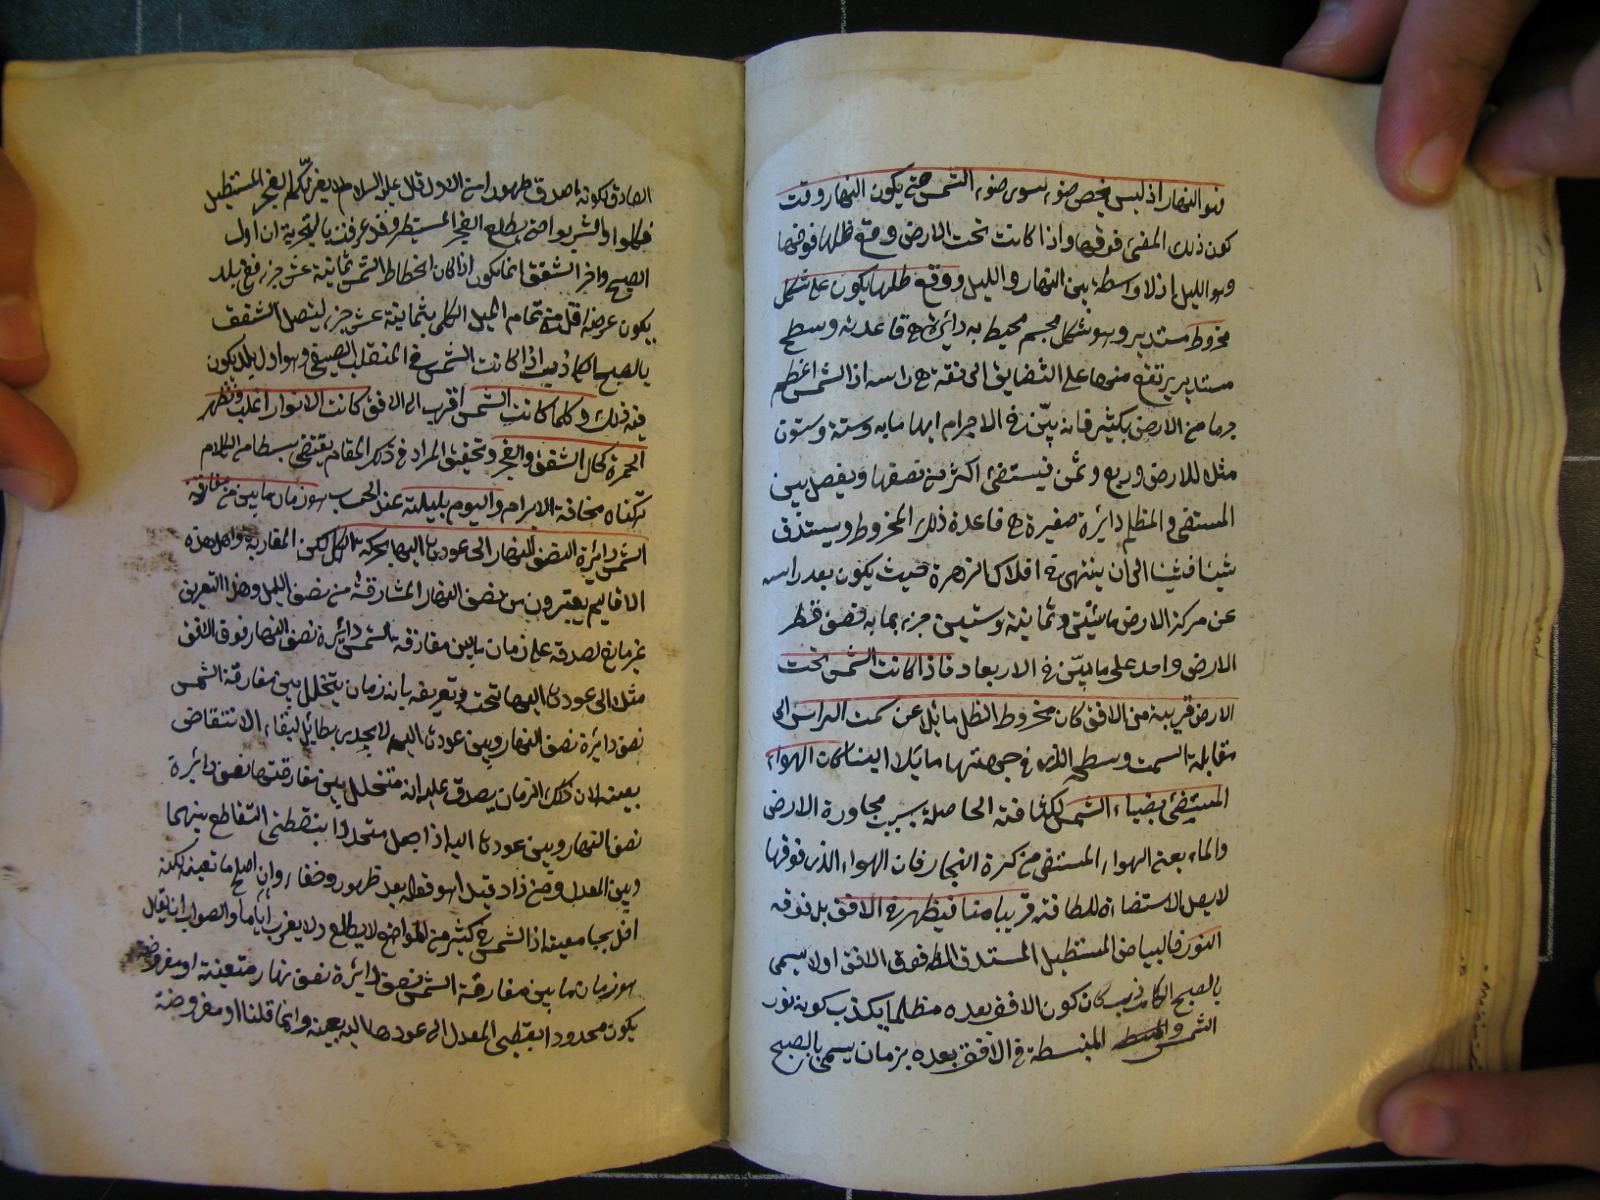 فهو النهار اذ ليس يحصى ضوء سوى ضوء الشمس حتى يكون النهار وقت
كون ذلك المضئ فوقها واذا كانت تحت الارض وقع ظلها فوقها
وهو الليل اذ لا واسطة بين النهار والليل ووقع ظلها يكون على شكل
مخروط مستدير وهو شكل مجسم محيط به دائرة هي قاعدته وسطح
مستدير يرتفع منها على التضايق الى نقطة هي راسه اذ الشمس اعظم
جرما من الارض بكثير فانه يبّن في الاجرام انها مايه وستة وستون
مثلا للارض وربع وثمن فيستضئ اكثر من نصفها ويفصل بين
المستضئ والمظلم دائرة صغيرة هي قاعدة ذلك المخروط ويستدق
شيئا فشيئا الى ان ينتهي في افلاك الزهرة حيث يكون بعد راسه
عن مركز الارض مائيتى وثمانية وستين جزء بما به نصف قطر
الارض واحد على ما يبّن في الابعاد فاذا كانت الشمس تحت
الارض قريبة من الافق كان مخروط الظل مائلا عن سمت الراس الى
مقابلة السمت وسطح الذى في جهتها مايلا الينا كان الهواء
المستضئ بضياء الشمس لكثافته الحاصلة بسبب مجاورة الارض
والماء يعنى الهواء المستضئ من كرة البخار فان الهواء الذى فوقها
لا يصل الاستضاءة للطافته قريبا منا فيظهر في الافق بل فوقه
النور فالبياض المستطيل المستدق الظ فوق الافق اولا يسمى
بالصبح الكاذب كان كون الافق بعده مظلما يكذب كونه نور
الشمس والمنبسط المنبسطة في الافق بعده بزمان يسمى بالصبح
الصادق لكونه اصدق ظهورا من الاول قال عليه السلام لا يغرنكم الفجر المستطيل
فكلوا واشربوا حتى يطلع الفجر المستطير وقد عرفت بالتجربة ان اول
الصبح واخر الشفق انما يكون اذا كان انحطاط الشمس ثمانية عشر جزء ففي بلد
يكون عرضه اقل من تمام الميل الكلي بثمانية عشر جزء يتصل الشفق
بالصبح الكاذب اذا كانت الشمس في المنقلب الصيفي وهو اول بلد يكون
فيه ذلك وكلما كانت الشمس اقرب الى الافق كانت الانوار اغلب وتظهر
الحمرة كحال الشفق والفجر وتحقيق المراد في ذكر المقام يقتضى بسطا من الكلام
تركناه مخافة الابرام واليوم بليلته عند الحساب هو زمان ما بين مفارقة
الشمس دائرة النصف للنهار الى عودتها اليها بحركة الكل لكن المغاربة واهل هذه
الاقاليم يعتبرون من نصف النهار المشارقة من نصف الليل وهذا التعريف
غير مانع لصدقه على زمان ما بين مفارقة الشمس دائرة نصف النهار فوق الافق
مثلا الى عودتها اليها تحت وتعريفه بانه زمان يتخلل بين مفارقة الشمس
نصف دائرة نصف النهار وبين عودتها اليه لا يجدي بطائل لبقاء الانتقاض
بعينه لان ذلك الزمان يصدق عليه انه متخلل بين مفارقتها نصف دائرة
نصف النهار وبين عودتها اليه اذا جعل متحددا بنقطتى التقاطع بينهما
وبين المعدل ومن زاد قيد ا هو قوله بعد ظهور وخفاء وان اصلح ما تعينه لكنه
اخل بجامعيته اذ الشمس في كثير من المواضع لا يطلع ولا يغرب اياما والصواب ان يقال
هو زمان ما بين مفارقة الشمس نصف دائرة نصف نهار متعينة او مفروضة
يكون محدودا بقطبى المعدل الى عودها اليه بعينه وانما قلنا او مفروضة